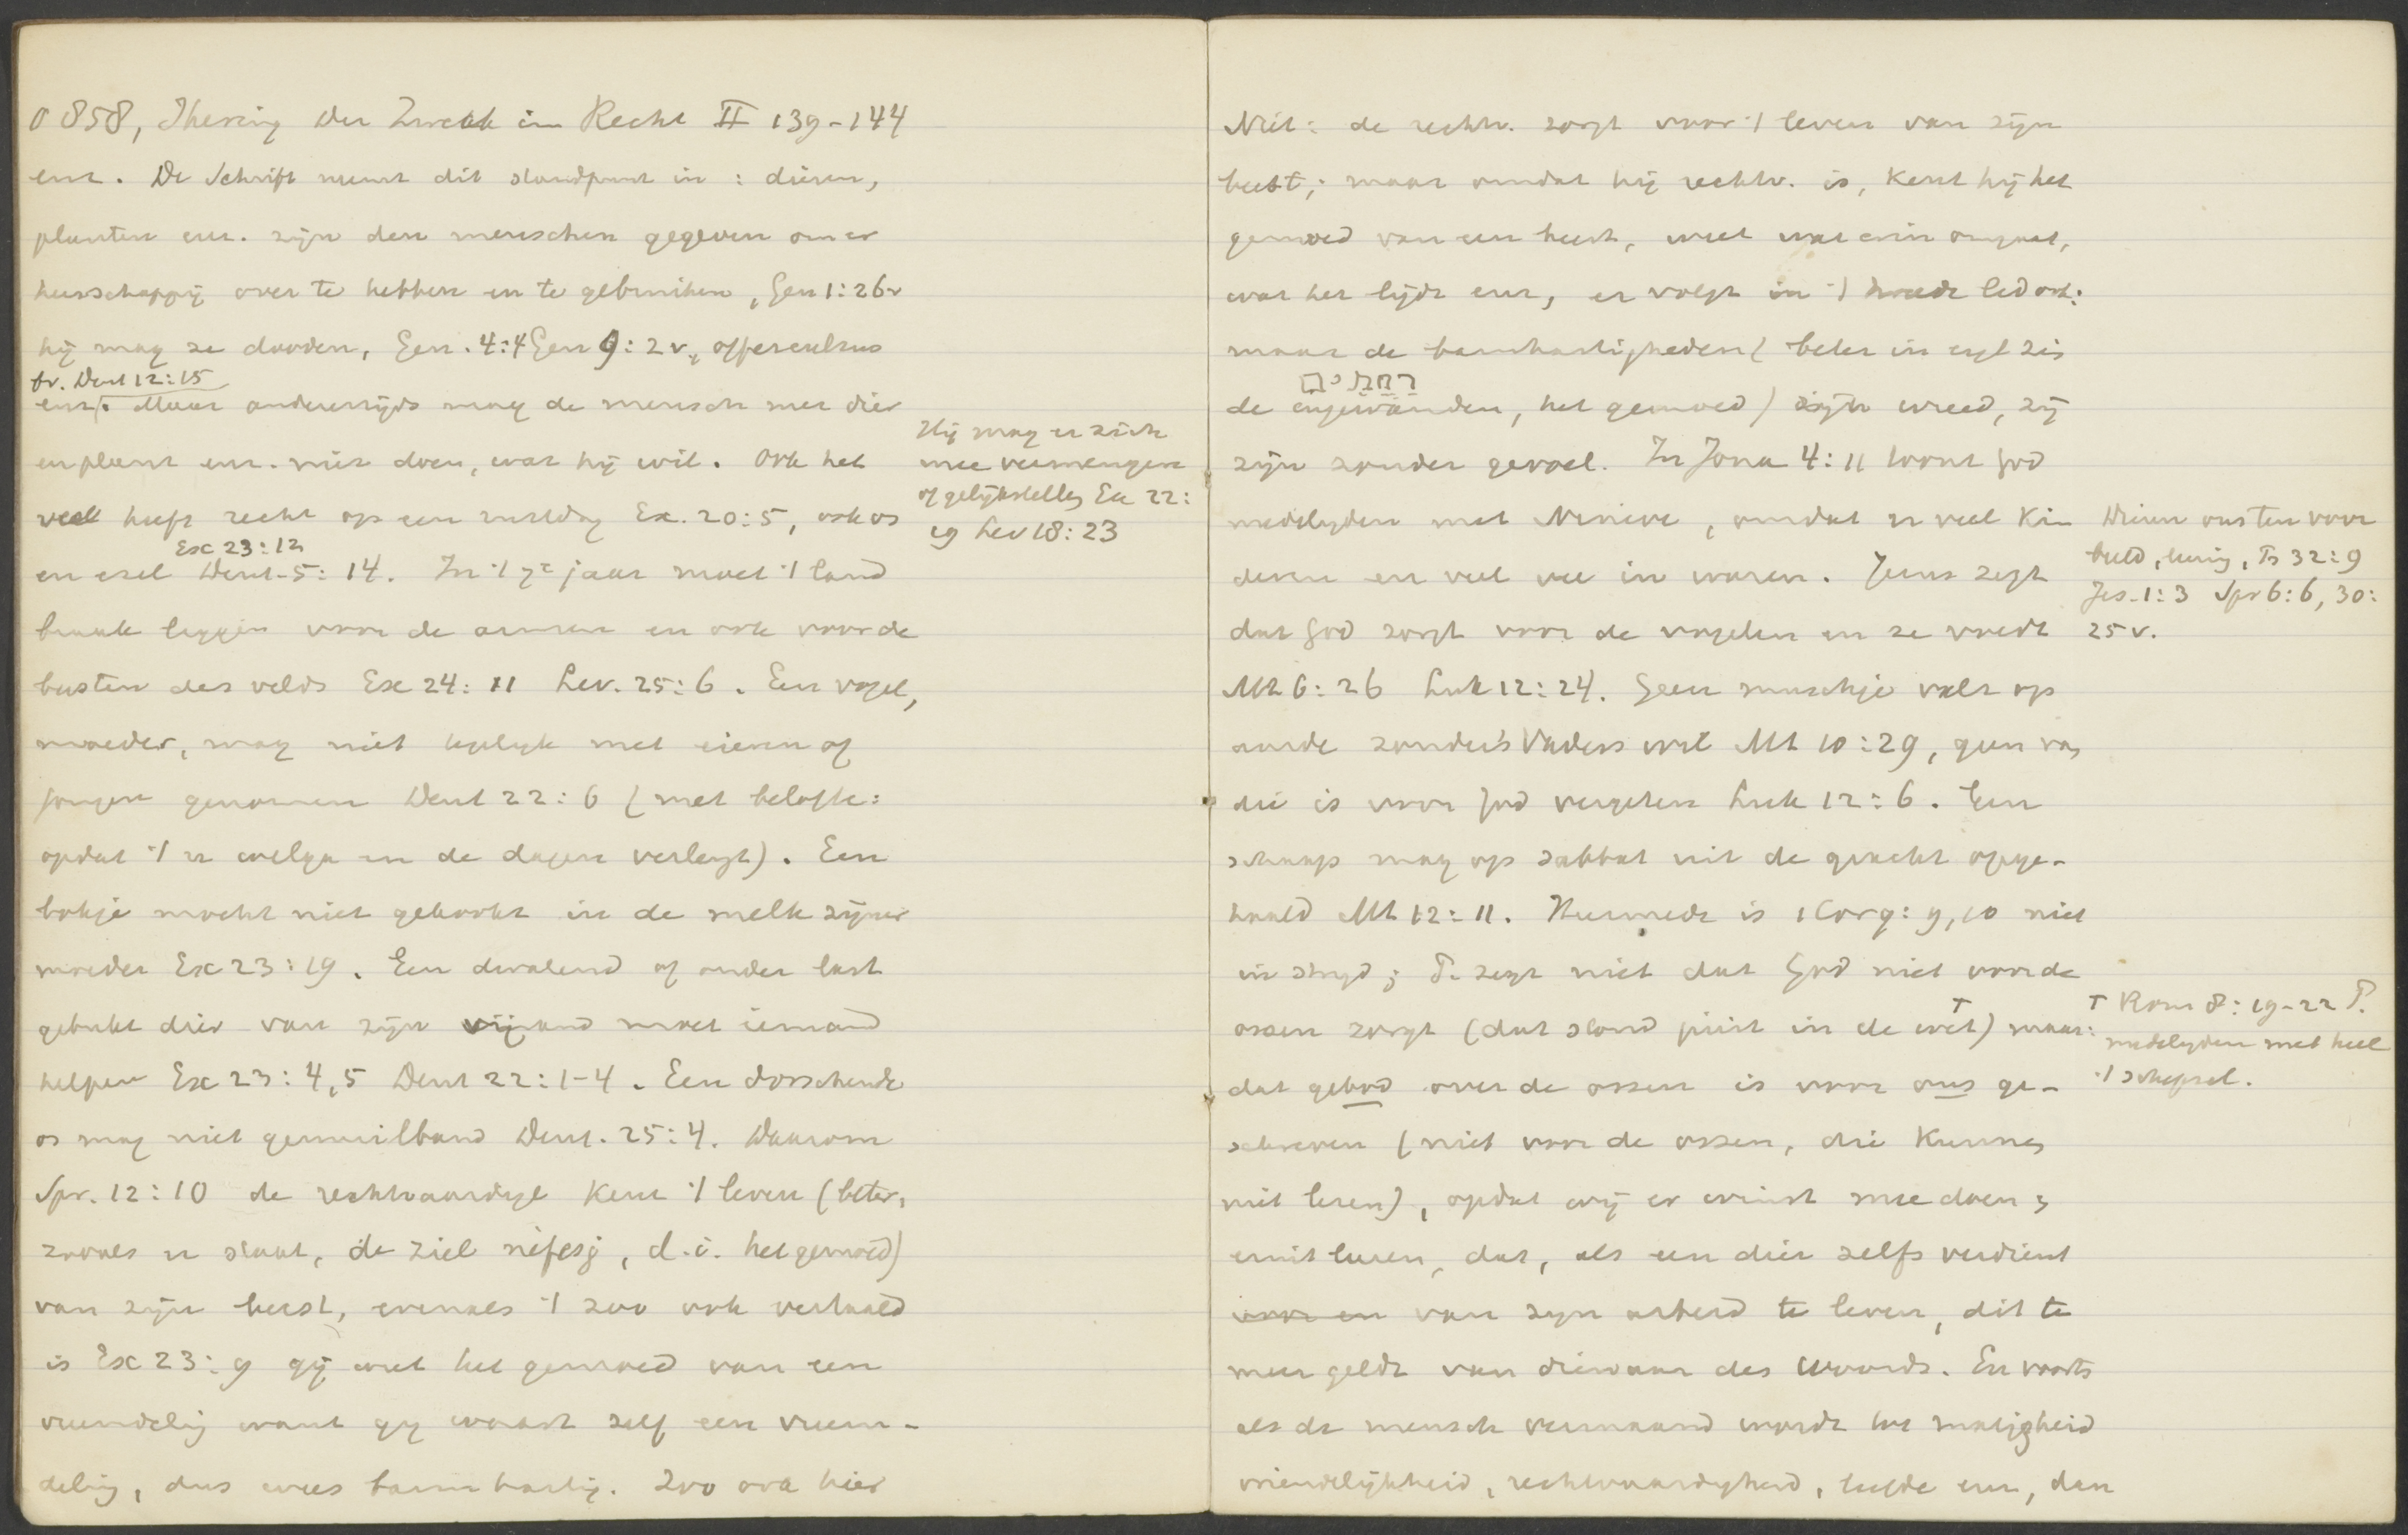 0 858, Ihering Der Zweck im Recht II 139-144
enz. De Schrift neemt dit standpunt in: dieren,
planten enz. zijn den menschen gegeven om er
heerschappij over te hebben en te gebruiken, Gen 1:26v
hij mag ze dooden, Gen. 4:4 Gen 9:2v, offercultus
br. Deut 12:15
enz. Maar anderzijds mag de mensch met dier
en plant enz. niet doen, wat hij wil. Ook het
vee heeft recht op een rustdag Ex. 20:5, ook os
Ex 23:12
en ezel Deut. 5:14. In 't 7e jaar moet 't land
braak liggen voor de armen en ook voor de
beesten des velds Ex 24:11 Lev. 25:6. Een vogel,
moeder, mag niet tegelijk met eieren of
jongen genomen Deut 22:6 (met belofte:
opdat 't u welga en de dagen verlengt). Een
bokje mocht niet gekookt in de melk zijner
moeder Ex 23:19. Een dwalend of onder last
gebukt dier van zijn vijand moet iemand
helpen Ex 23:4,5 Deut 22:1-4. Een dorschende
os mag niet gemuilband Deut. 25:4. Daarom
Spr. 12:10 de rechtvaardige kent 't leven (beter,
zooals er staat, de ziel nefesj, d.i. het gemoed)
van zijn beest, evenals 't zoo ook vertaald
is Ex 23:9 gij weet het gemoed van een
vreemdeling want gij waart zelf een vreem-
deling, dus wees barmhartig. Zoo ook hier
Hij mag er zich
mee vermengen
of gelijkstellen Ex 22:
19 Lev 18:23
Niet: de rechtv. zorgt voor 't leven van zijn
beest; maar omdat hij rechtv. is, kent hij het
gemoed van een beest, weet wat erin omgaat,
wat het lijdt enz, er volgt in 't tweede lid ook:
maar de barmhartigheden (beter in
רחמים
de ingewanden, het gemoed) zijn wreed, zij
zijn zonder gevoel. In Jona 4:11 toont God
medelijden met Nineve, omdat er veel kin
deren en veel vee in waren. Jezus zegt
dat God zorgt voor de vogelen en ze voedt
Mt 6:26 Luk 12:24. Geen muschje valt op
aarde zonder 's Vaders wil Mt 10:29, geen van
die is voor God vergeten Luk 12:6. Een
schaap mag op sabbat uit de gracht opge-
haald Mt 12:11. Hiermede is 1 Cor 9:9,10 niet
in strijd; P. zegt niet dat God niet voor de
ossen zorgt (dat stond juist in de wet) maar:
dat gebod over de ossen is voor ons ge-
schreven (niet voor de ossen, die kunnen
niet lezen), opdat wij er winst mee doen;
eruit leeren, dat, als een dier zelfs verdient
van zijn arbeid te leven, dit te
meer geldt van dienaar des Woords. En voorts
als de mensch vermaand wordt tot matigheid
vriendelijkheid, rechtvaardigheid, liefde enz, dan
Dieren ons ten voor
beeld, Ps 32:9
Jes. 1:3 Spr 6:6, 30:
25 v.
┬ Rom 8:19-22 P.
medelijden met heel
't schepsel.